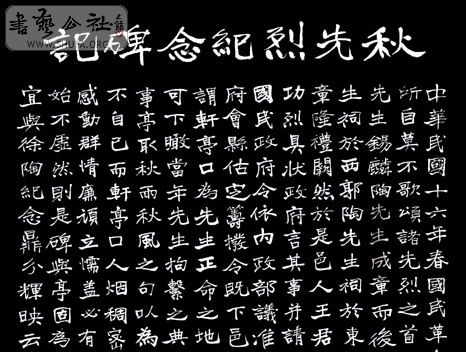 書藝公社
WWW.SHUFA.ORG
秋先烈紀念碑記
中華民國十六年春國民革
所目莫不歌頌諸先烈之首
先生錫麟陶先生成章而後
生祠於西郭陶先生祠於東
章隆禮闕然於是邑人王君
功烈具狀政府言其事并請
國民政府令依內政部議准
府會縣估定籌撥令既下邑
謂軒亭口為先生正命之地
可下瞰當年先生拘繫之典
事亭取秋雨秋風之句以為
不自已而軒亭口人烟稠密
感動群情廉頑立懦蓋必有
始不虛然則是碑與亭固為
宜與徐陶紀念鼎分輝映云